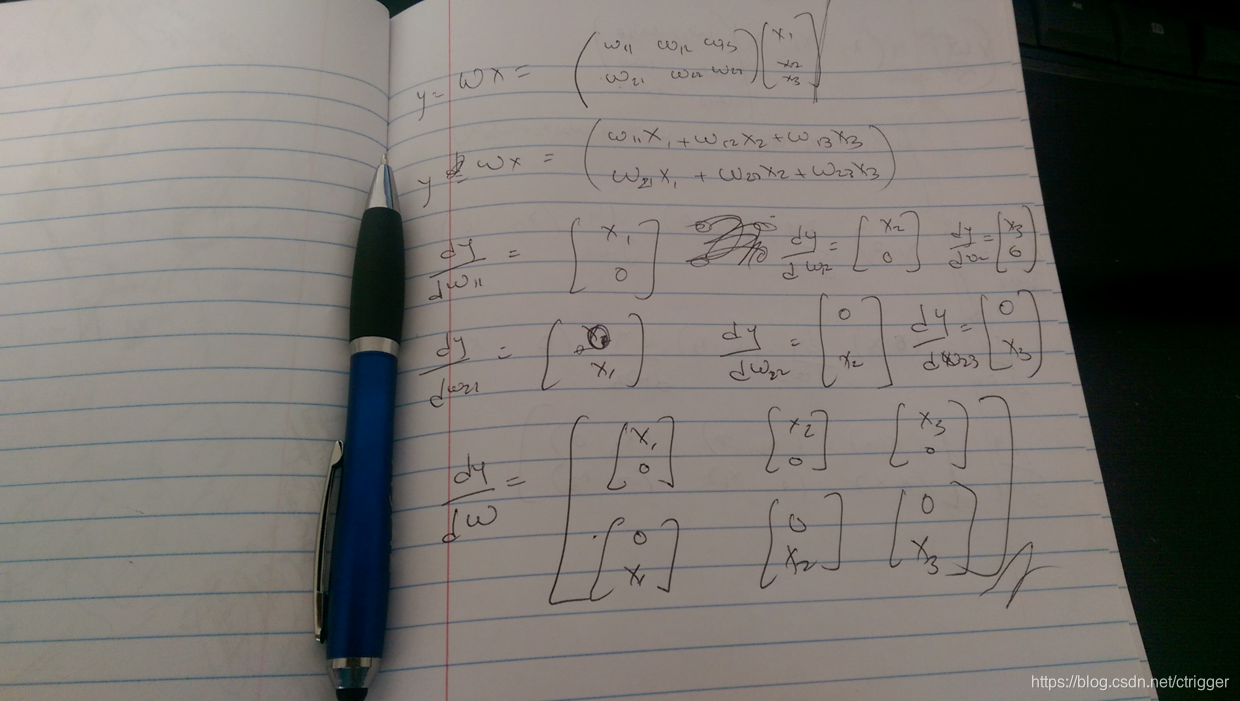 y = ωx = ( ω11 ω12 ω13 ; ω21 ω22 ω23 ) [ x1 ; x2 ; x3 ]
y = ωx = ( ω11x1 + ω12x2 + ω13x3 ; ω21x1 + ω22x2 + ω23x3 )
dy/dω11 = [ x1 ; 0 ] dy/dω12 = [ x2 ; 0 ] dy/ = [ x3 ; 0 ]
dy/dω21 = [ x1 ] dy/dω22 = [ 0 ; x2 ] dy/dω23 = [ 0 ; x3 ]
dy/dω = [ [ x1 ; 0 ] [ x2 ; 0 ] [ x3 ; 0 ] ; [ 0 ; x1 ] [ 0 ; x2 ] [ 0 ; x3 ] ]
https://blog.csdn.net/ctrigger